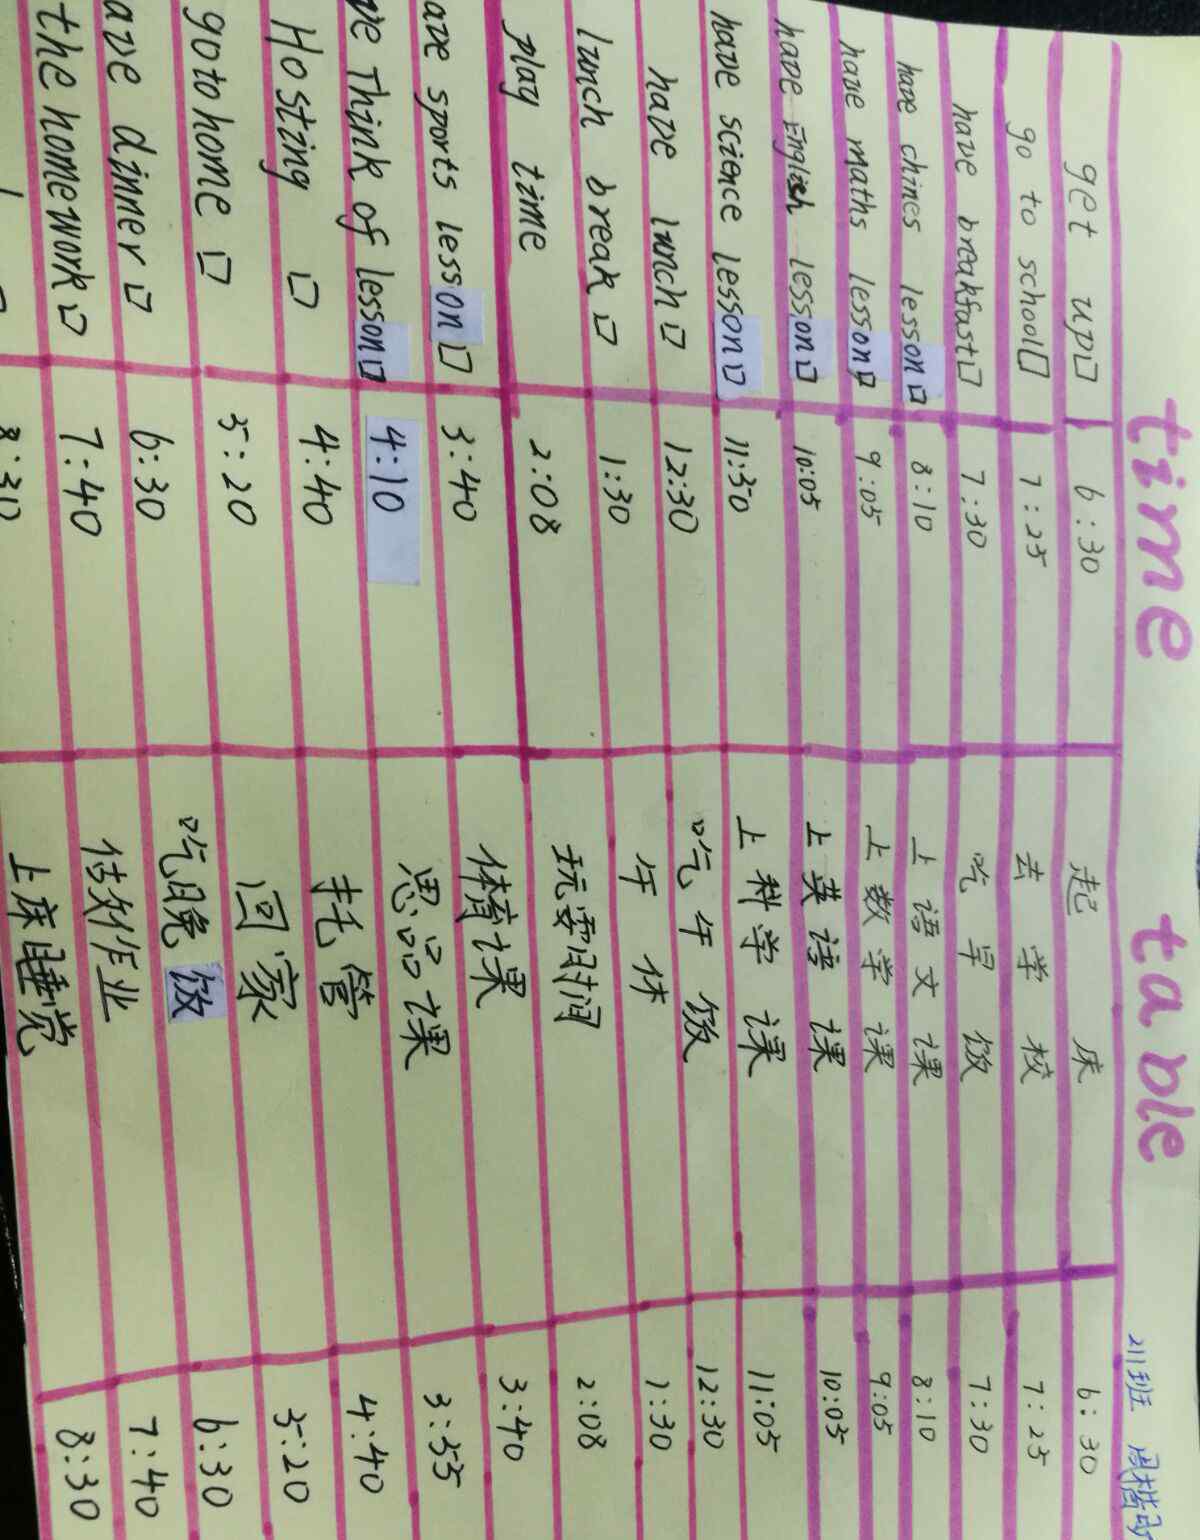 time table 211班
get up 6:30 起床 6:30
go to school 7:25 去学校 7:25
have breakfast 7:30 吃早饭 7:30
have chines lesson 8:10 上语文课 8:10
have maths lesson 9:05 上数学课 9:05
have English lesson 10:05 上英语课 10:05
have science lesson 11:50 上科学课 11:05
have lunch 12:30 吃午饭 12:30
lunch break 1:30 午休 1:30
play time 2:08 玩耍时间 2:08
ave sports lesson 3:40 体育课 3:40
ve Think of lesson 4:10 思品课 3:55
Hosting 4:40 托管 4:40
go to home 5:20 回家 5:20
ave dinner 6:30 吃晚饭 6:30
the homework 7:40 作业 7:40
8:30 上床睡觉 8:30